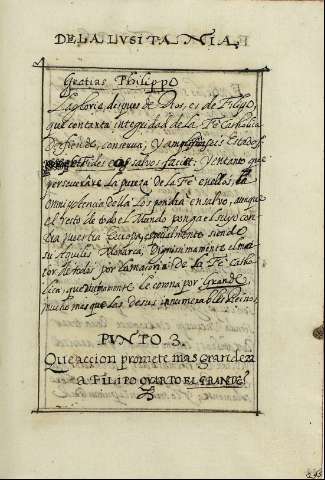 DE LA LVSITANIA.
Gratias Philippo
La gloria, despues de Dios, es de Filipo,
que con tanta integridad de la Fe Catholica
Defiende, conserva; Y amplifica sus Estados
Fides eos salvos facit: Y en tanto que
perseverare La pureza de la Fe en ellos, la
Omnipotencia de la Los pondra en salvo, aunque
el resto de todo el Mundo ponga el suyo con
tra nuestra Europa, especialmente siendo
su Aquiles Monarca, Dignissimamente el ma
ior de todos por la maioria de la Fe Catho
lica, que dignamente le corona por Grande
mucho mas que las de sus innumerables Reinos.
PVNTO 3.
Que accion promete mas grandeza
A FILIPO QVARTO EL GRANDE?